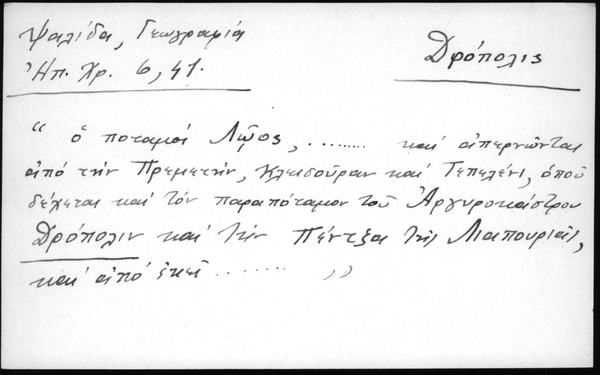 Ψαλίδα, Γεωγραφία
Δρόπολις
Ἠπ. Χρ. 6, 41.
“ ὁ ποταμὸς Λῶος, ......... καὶ ἀπερνῶντας
ἀπὸ τὴν Πρεμετὴν, Κλεισοῦραν καὶ Τεπελένι, ὁποῦ
δέχεται καὶ τὸν παραπόταμον τοῦ Ἀργυροκάστρου
Δρόπολιν καὶ τὴν Πέντζαν τῆς Λιαπουριᾶς,
καὶ ἀπὸ ἐκεῖ ........ ”